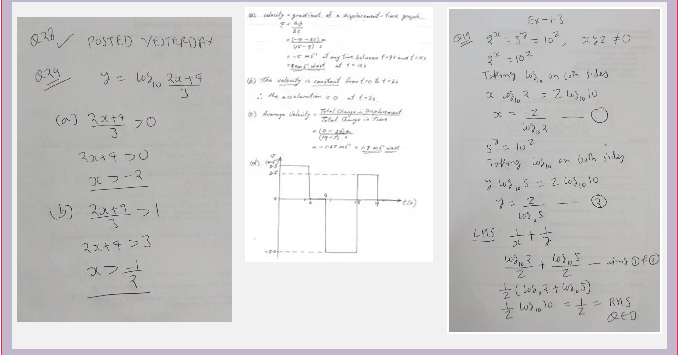 Q28 ✓ POSTED YESTERDAY
Q29 y = log₁₀ (2x+4)/3
(a) (2x+4)/3 > 0
2x+4 > 0
x > -2
(b) (2x+2)/3 > 1
2x+4 > 3
x > -1/2
(a) velocity = gradient of a displacement-time graph
at any time between t=9s and t=15s
(b) The velocity is constant from t=0 to t=6s
∴ the acceleration = 0 at t=2s
(c) Average Velocity = Total Change in Displacement / Total Change in Time
(d)
t(s)
Ex-1.3
2ˣ = 5ʸ = 10ᶻ, xyz ≠ 0
2ˣ = 10ᶻ
Taking log₁₀ on both sides
x log₁₀ 2 = z log₁₀ 10
x = z / log₁₀ 2 — ①
5ʸ = 10ᶻ
Taking log₁₀ on both sides
y log₁₀ 5 = z log₁₀ 10
y = z / log₁₀ 5 — ②
LHS 1/x + 1/y
log₁₀ 2 / z + log₁₀ 5 / z — using ① & ②
1/z (log₁₀ 2 + log₁₀ 5)
1/z log₁₀ 10 = 1/z = RHS
QED